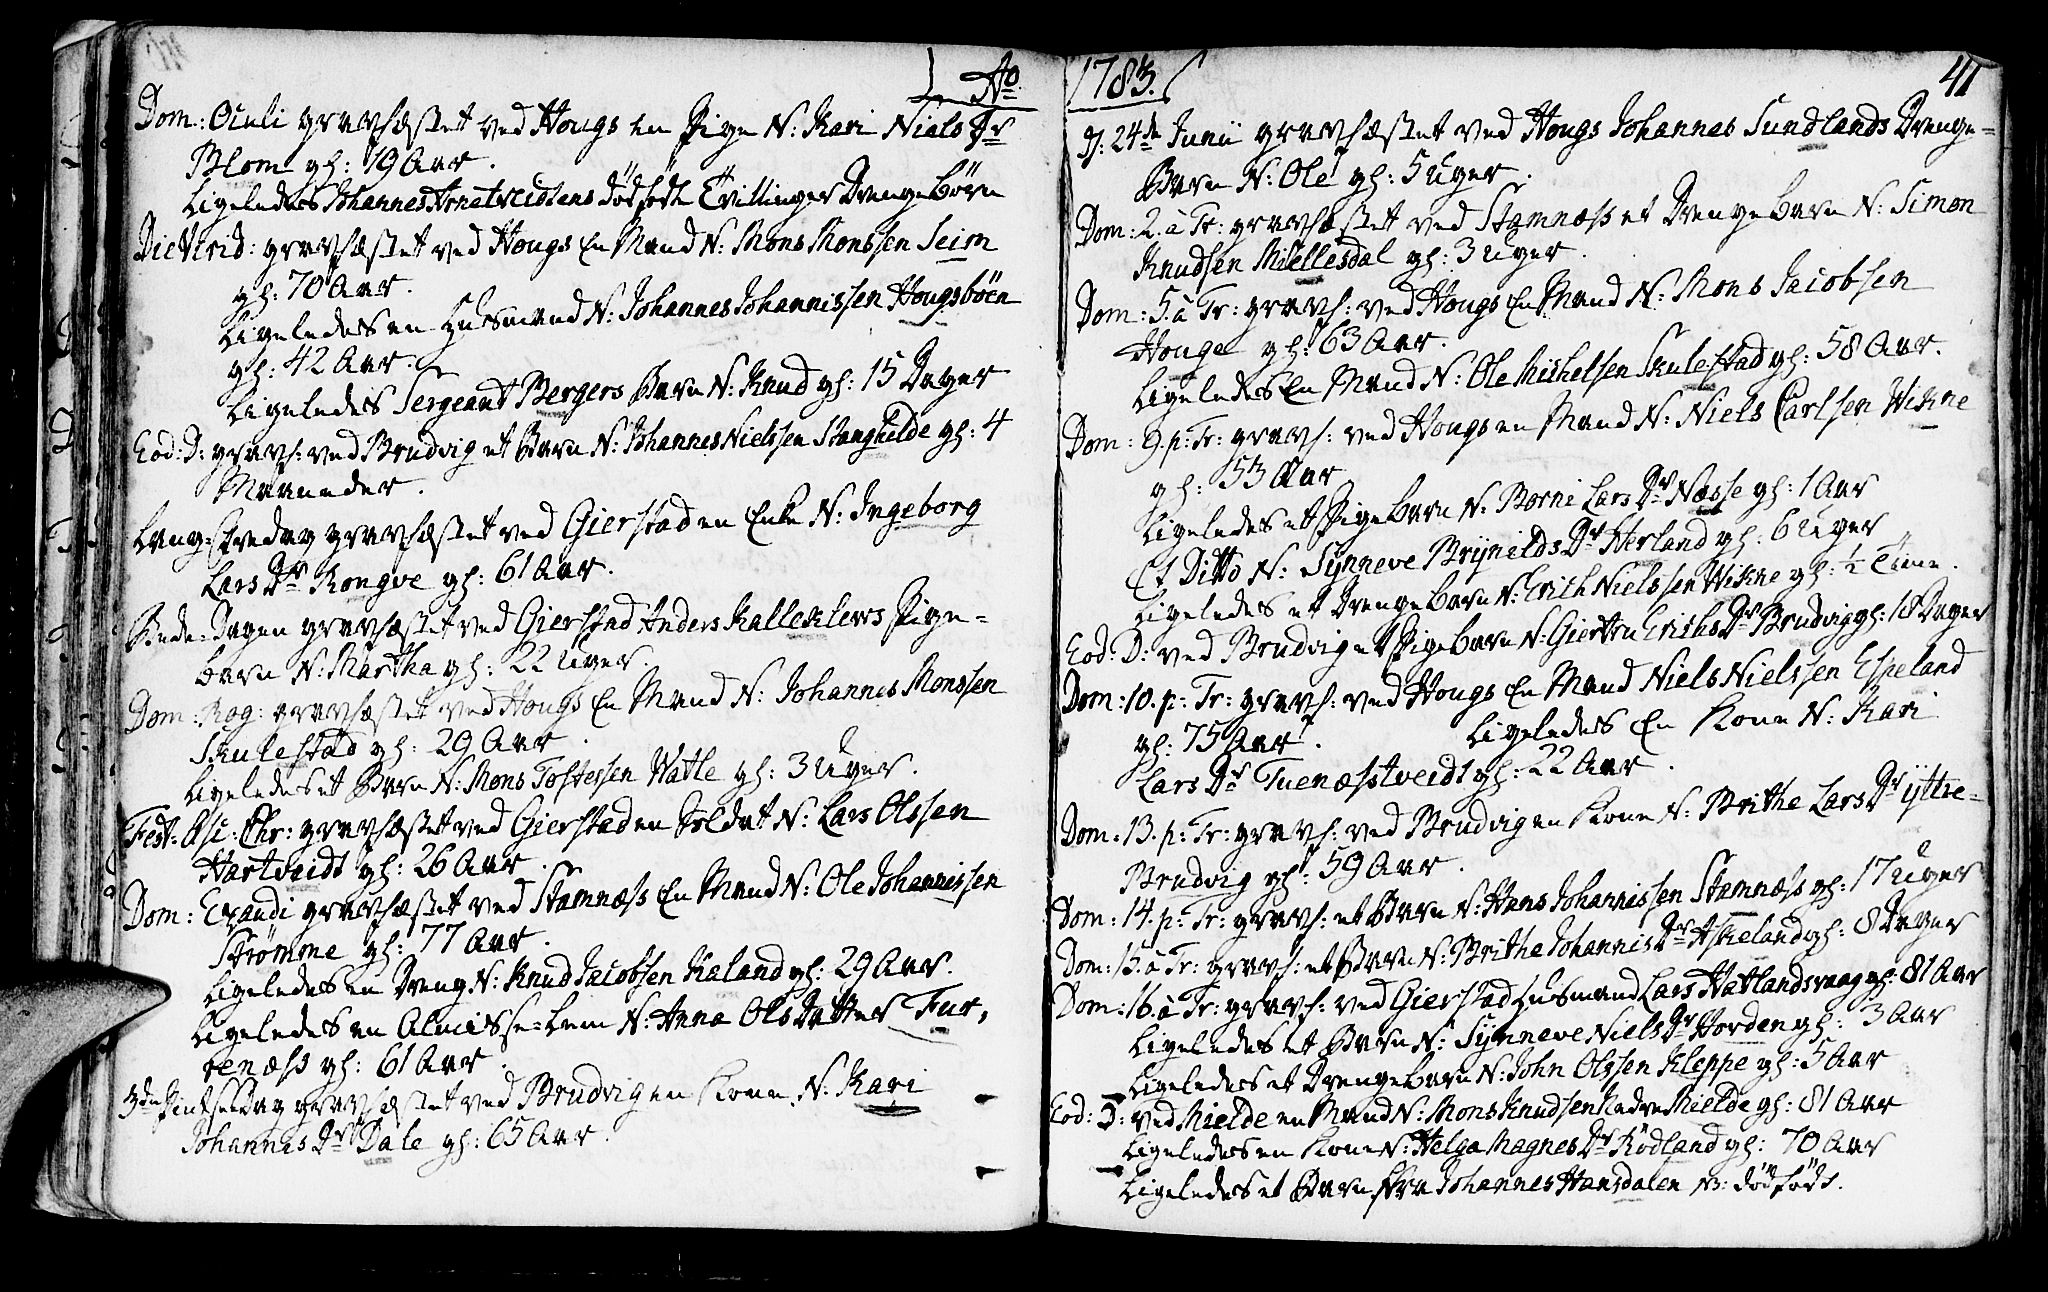 Ao
Dom: Oculi gravfæstet ved Hougs en Pige N: Kari Niels Dr
Blom gl: 19 Aar.
Ligeledes Johannes Arnetveidtens dödfödte Tvillinger Drengebörn
Die Virid: gravfæstet ved Hougs En Mand N: Mons Monssen Seim
gl: 70 Aar.
Ligeledes en Huusmand N: Johannes Johannissen Hougsböen
gl: 42 Aar.
Ligeledes Sergeant Bergers Barn N: Knud gl: 15 Dager
Eod: D: gravf: ved Brudvig et Barn N: Johannes Nielssen Stanghelde gl: 4
Maaneder.
Lang-Fredag gravfæstet ved Gierstad en Enke N: Ingeborg
Lars Dr Rongve gl: 61 Aar.
Bede-Dagen gravfæstet ved Gierstad Anders Kalleklews Pige-
barn N: Martha gl: 22 Uger.
Dom: Rog: gravfæstet ved Hougs En Mand N: Johannes Monssen
Skulestad gl: 29 Aar.
Ligeledes et Barn N: Mons Tostessen Watle gl: 3 Uger.
Fest: Asc: Chr: gravfæstet ved Gierstad en Soldat N: Lars Olssen
Hartveidt gl: 26 Aar.
Dom: Exaudi gravfæstet ved Stamnæss En Mand N: Ole Johannissen
Strömme gl: 77 Aar.
Ligeledes en Dreng N: Knud Jacobsen Kaland gl: 29 Aar.
Ligeledes en Almisse-Lem N: Anna Ols Datter Fur,
renæss gl: 61 Aar.
3die Pintsedag gravfæstet ved Brudvig en Kone N: Kari
Johannis Dr Dale gl: 65 Aar.
1783.
41
d: 24de Junii gravfæstet ved Hougs Johannes Sundlands Drenge-
Barn N: Ole gl: 5 Uger.
Dom: 2. a Tr: gravfæstet ved Stamnæss et Drengebarn N: Simon
Knudsen Miellesdal gl: 3 Uger.
Dom: 5. a Tr: gravf: ved Hougs En Mand N: Mons Jacobsen
Houge gl: 63 Aar.
Ligeledes En Mand N: Ole Michelsen Skulestad gl: 58 Aar.
Dom: 9. p: Tr: gravf: ved Hougs en Mand N: Niels Carlsen Wikne
gl: 53 Aar
Ligeledes et Pigebarn N: Borni Lars Dr Næsse gl: 1 Aar
Et Ditto N: Synneve Brynilds Dr Herland gl: 6 Uger
Ligeledes et Drengebarn N: Erich Nielssen Wikne gl: ½ Time.
Eod: D: ved Brudvig et Pigebarn N: Giertru Erichs Dr Brudvig gl: 18 Dager
Dom: 10. p: Tr: gravf: ved Hougs En Mand Niels Nielssen Espeland
gl: 75 Aar. Ligeledes En Kone N: Kari
Lars Dr Tuenæsstveidt gl: 22 Aar.
Dom: 13. p: Tr: gravf: ved Brudvig en Kone N: Brithe Lars Dr yttre-
Brudvig gl: 59 Aar.
Dom: 14. p: Tr: gravf: et Barn N: Hans Johannissen Stamnæss gl: 17 Uger
Dom: 15. a Tr: gravf: et Barn N: Brithe Johannis Dr Askeland gl: 8 Dager
Dom: 16. a Tr: gravf: ved Gierstad Huusmand Lars Hatlandsvaag gl: 81 Aar
Ligeledes et Barn N: Synneve Niels Dr Horden gl: 3 Aar
Ligeledes et Drengebarn N: John Olssen Kleppe gl: 5 Aar
Eod: D: ved Mielde en Mand N: Mons Knudsen Nedre Mielde gl: 81 Aar
Ligeledes en Kone N: Helga Magnes Dr Rödland gl: 70 Aar
Ligeledes et Barn fra Johannes Hansdalen N: dödfödt.